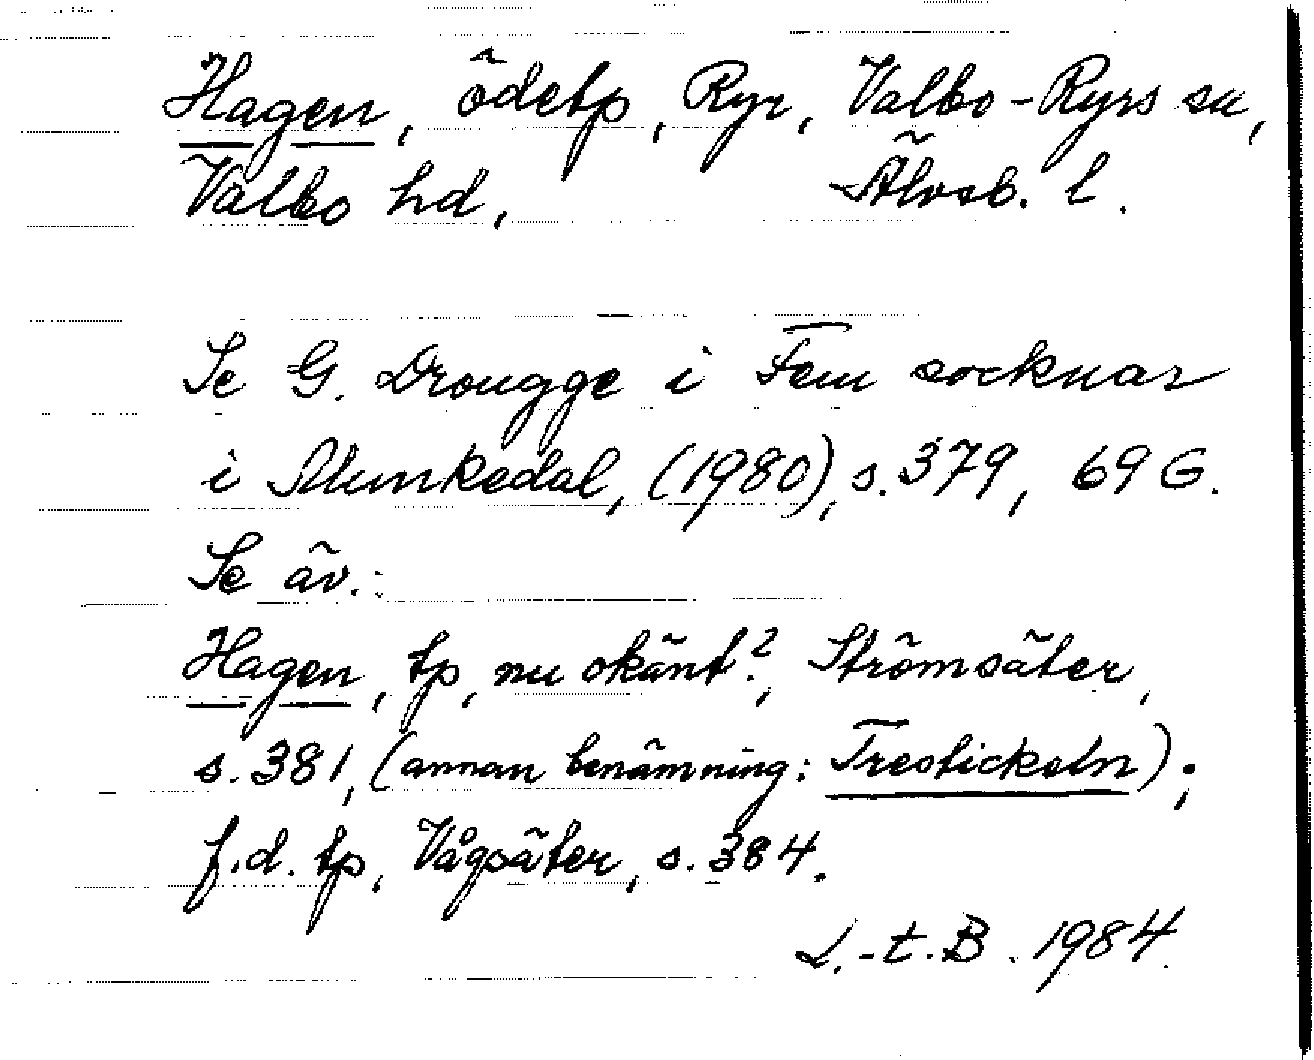 Hagen, ödetp, Ryr, Valbo-Ryrs sn,
Valbo hd, Älvsb. l.
Se G. Drougge i Fem socknar
i Munkedal, (1980), s. 379, 69 G.
Se äv.:
Hagen, tp, nu okänt?, Strömsäter,
s. 381, (annan benämning: Trestickeln);
f.d. tp, Vågsäter, s. 384.
L.-t. B. 1984.